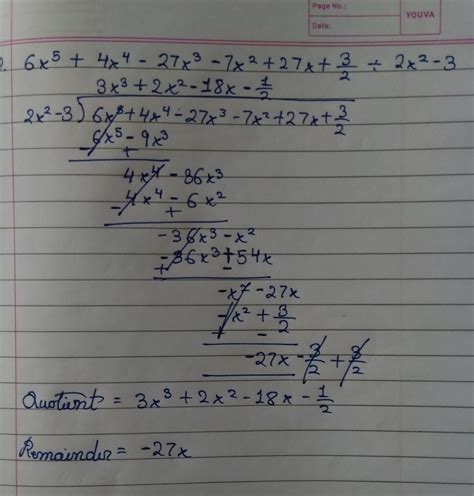 Page No.:
Date:
YOUVA
6x⁵ + 4x⁴ - 27x³ - 7x² + 27x + 3/2 ÷ 2x² - 3
3x³ + 2x² - 18x - 1/2
2x² - 3) 6x⁵ + 4x⁴ - 27x³ - 7x² + 27x + 3/2
6x⁵ - 9x³
- +
4x⁴ - 36x³
4x⁴ - 6x²
- +
-36x³ - x²
-36x³ + 54x
+ -
-x² - 27x
-x² + 3/2
+ -
-27x - 3/2 + 3/2
Quotient = 3x³ + 2x² - 18x - 1/2
Remainder = -27x